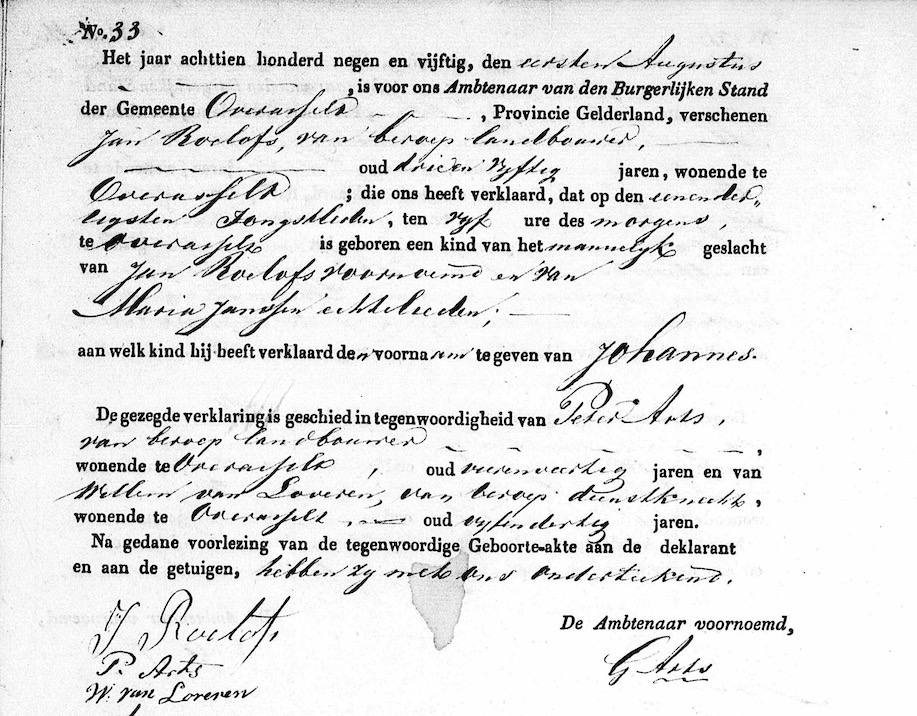 No. 33
Het jaar achttien honderd negen en vijftig, den eersten Augustus
, is voor ons Ambtenaar van den Burgerlijken Stand
der Gemeente Overasselt , Provincie Gelderland, verschenen
Jan Roelofs, van beroep landbouwer,
oud drieen vyftig jaren, wonende te
Overasselt ; die ons heeft verklaard, dat op den eenender„
tigsten Jongstleden, ten vyf ure des morgens,
te Overasselt is geboren een kind van het mannelyk geslacht
van Jan Roelofs voornoemd en van
Maria Janssen echtelieden;
aan welk kind hij heeft verklaard den voornaam te geven van Johannes.
De gezegde verklaring is geschied in tegenwoordigheid van Peter Arts,
van beroep landbouwer ,
wonende te Overasselt , oud vierenveertig jaren en van
Willem van Loveren, van beroep dienstknecht,
wonende te Overasselt oud vyfendertig jaren.
Na gedane voorlezing van de tegenwoordige Geboorte-akte aan de deklarant
en aan de getuigen, hebben zy met ons onderteekend.
J Roelofs
De Ambtenaar voornoemd,
P. Arts
G Arts
W. van Loveren